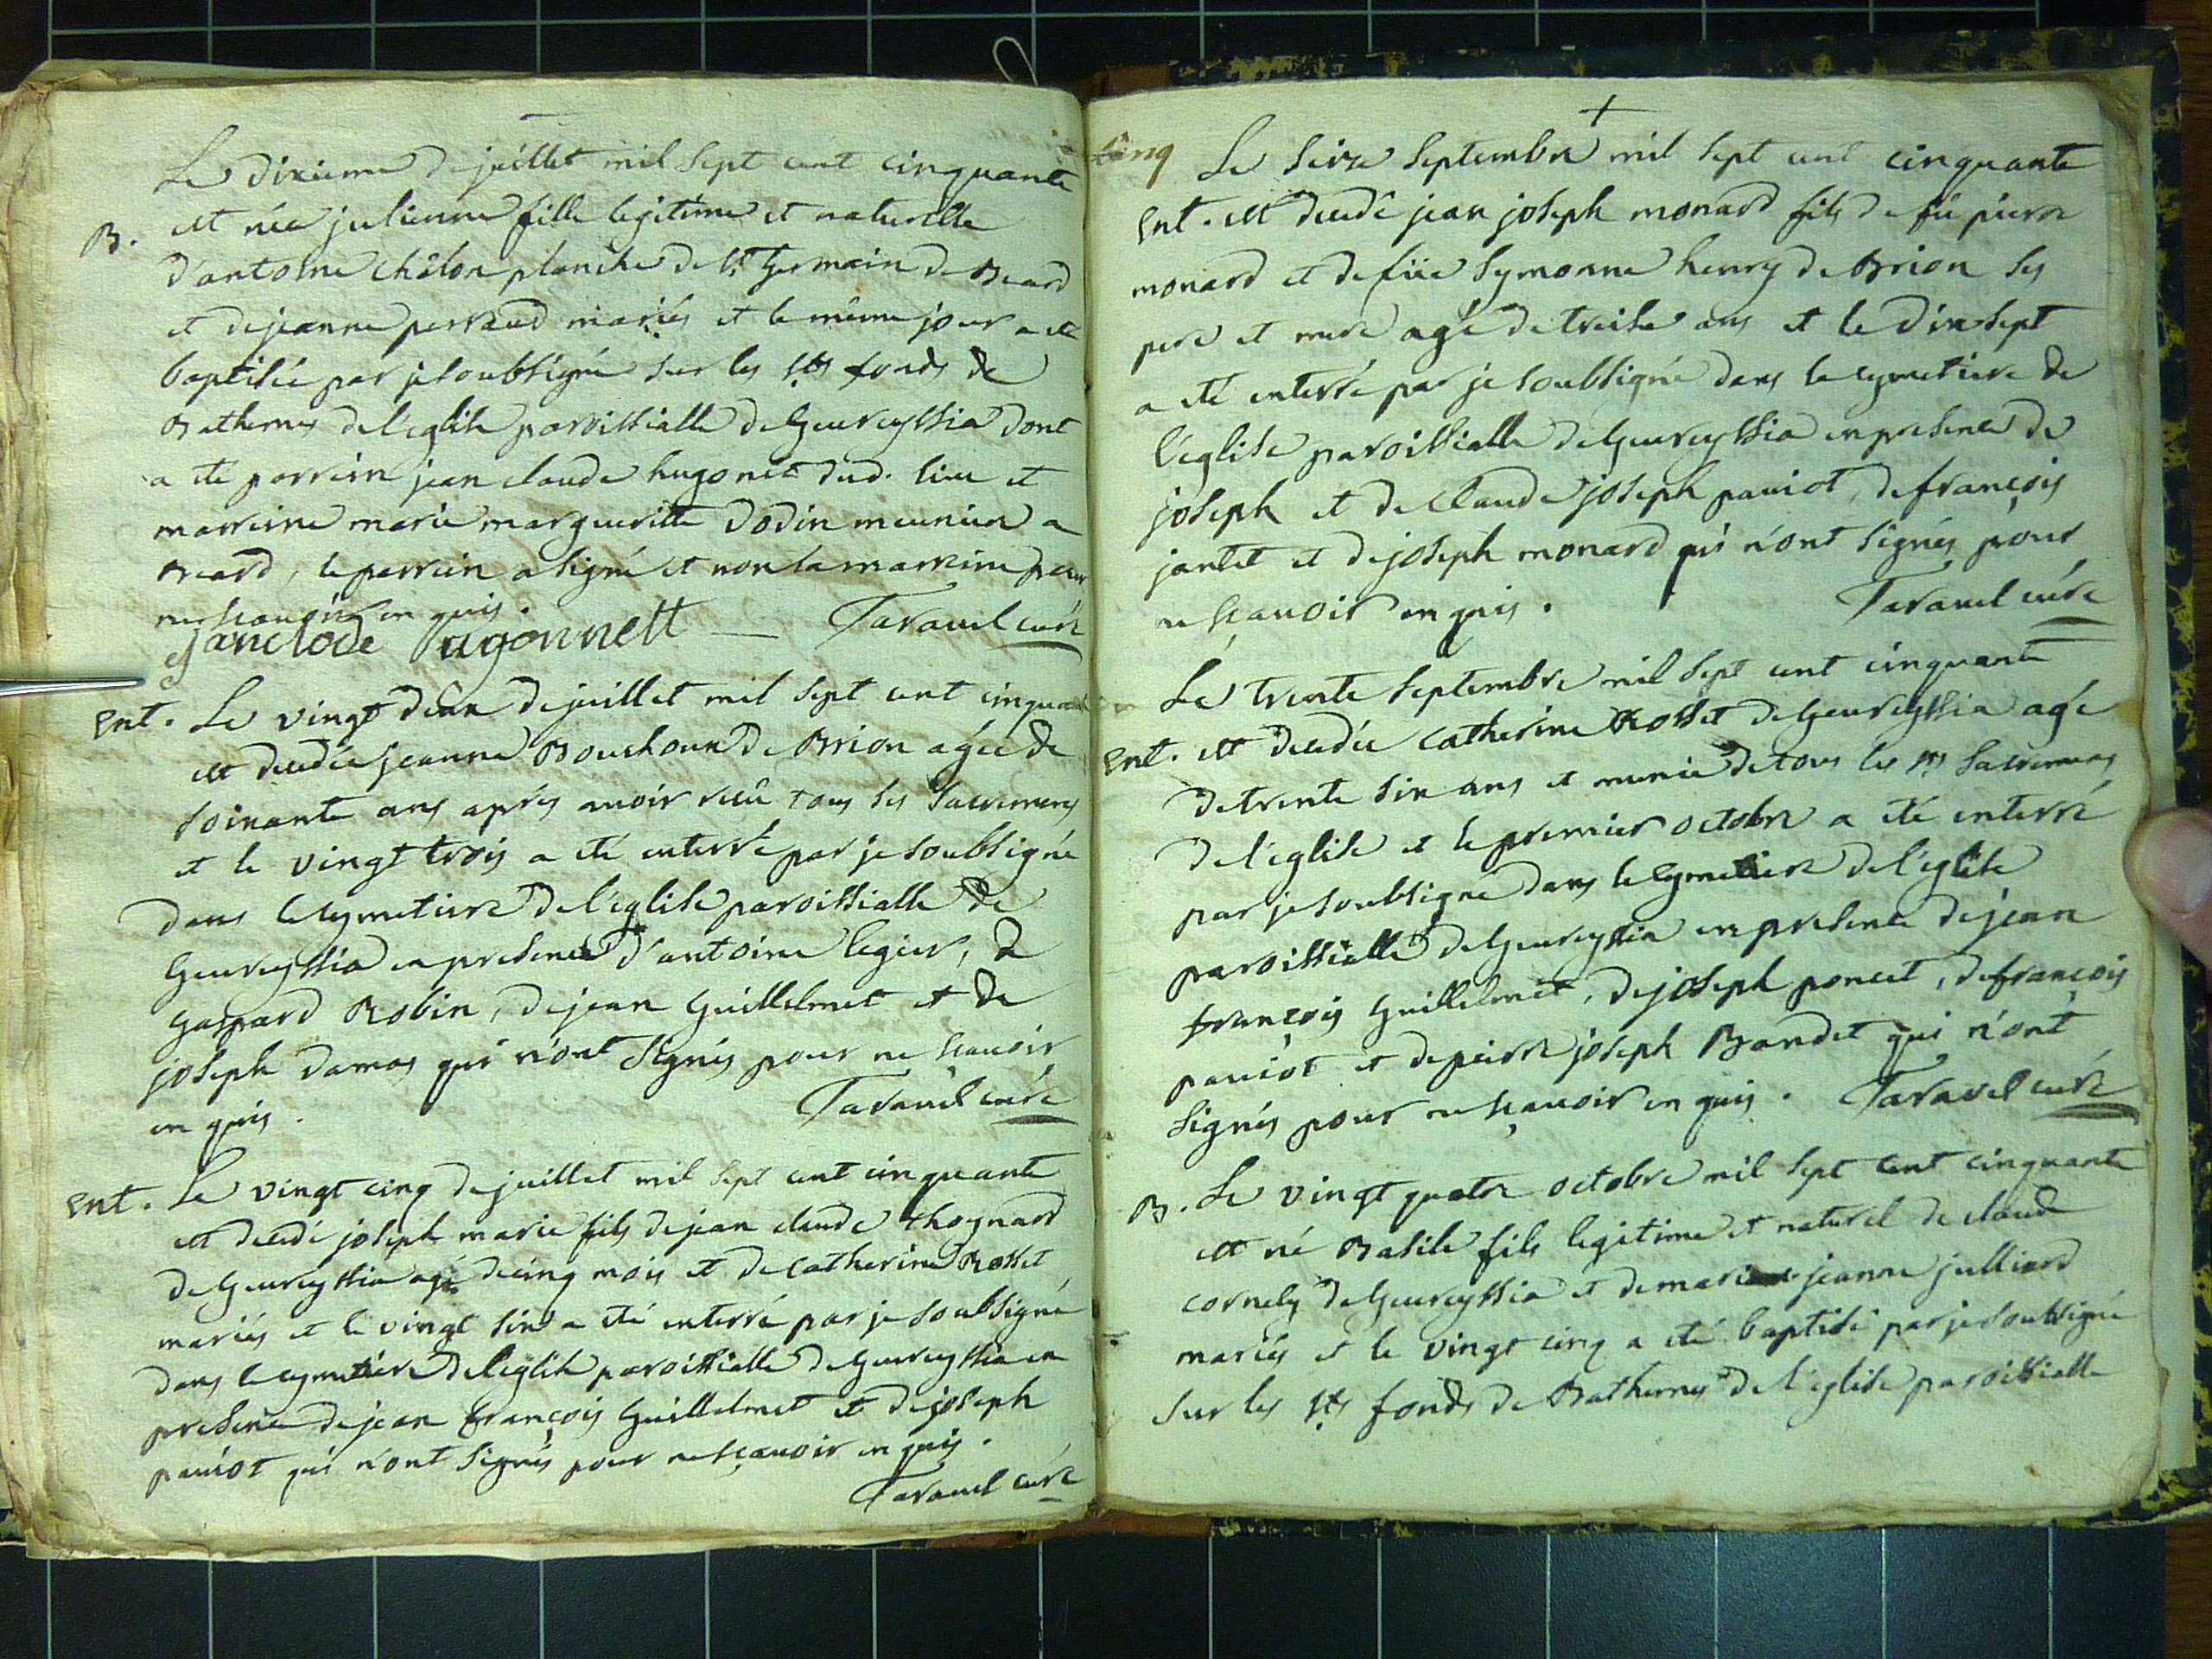 Le dixieme de juillet mil sept cent cinquante
B. est née julienne fille legitime et naturelle
d'antoine châlon planche de st Germain de Beard
et de jeanne perraud mariés et le même jour a eté
baptisée par je soubsigné sur les sts fonds de
Bathemes de l'eglise paroissialle de Geureyssia dont
a eté parrein jean claude hugonet dud. lieu et
marreine marie margueritte Dodin meunier a
Beard, le parrein a signé et non la marreine pour
ne sçauoir en quis.
janclode ugonnett — Tarauel curé
Ent. Le vingt deux de juillet mil sept cent cinquante
est decedée jeanne Bouchoux de Brion agée de
soixante ans aprés auoir reçû tous ses sacremens
et le vingt trois a eté enterré par je soubsigné
dans le cymetiere de l'eglise paroissialle de
Geureyssia en presence d'antoine legier, de
gaspard Robin, de jean Guillelmet et de
joseph Damas qui n'ont signés pour ne sçauoir
en quis. Tarauel curé
Ent. Le vingt cinq de juillet mil sept cent cinquante
est decedé joseph marie fils de jean claude thognard
de Geureyssia agé de cinq mois et de catherine Rosset
mariés et le vingt six a eté enterré par je soubsigné
dans le cymetiere de l'eglise paroissialle de Geureyssia en
presence de jean françois Guillelmet et de joseph
pauiot qui n'ont signés pour ne sçauoir en quis.
Tarauel curé
cinq
Le seize septembre mil sept cent cinquante
Ent. est decedé jean joseph monard fils de fû pierre
monard et de fûe symonne henry de Brion ses
pere et mere agé de treise ans et le dix sept
a eté enterré par je soubsigné dans le cymetiere de
l'eglise paroissialle de Geureyssia en presence de
joseph et de claude joseph pauiot, de françois
jantet et de joseph monard qui n'ont signés pour
ne sçauoir en quis. Tarauel curé
Le trente septembre mil sept cent cinquante
Ent. est decedée catherine Rosset de Geureyssia agé
de trente six ans et munie de tous les sts sacremens
de l'eglise et le premier octobre a eté enterré
par je soubsigné dans le cymetiere de l'eglise
paroissialle de Geureyssia en presence de jean
françois Guillelmet, de joseph poncet, de françois
pauiot et de pierre joseph Bandet qui n'ont
signés pour ne sçauoir en quis. Tarauel curé
B. Le vingt quatre octobre mil sept cent cinquante
est né Basile fils legitime et naturel de claude
cornely de Geureyssia et de marie jeanne julliard
mariés et le vingt cinq a eté baptisé par je soubsigné
sur les sts fonds de Bathemes de l'eglise paroissialle